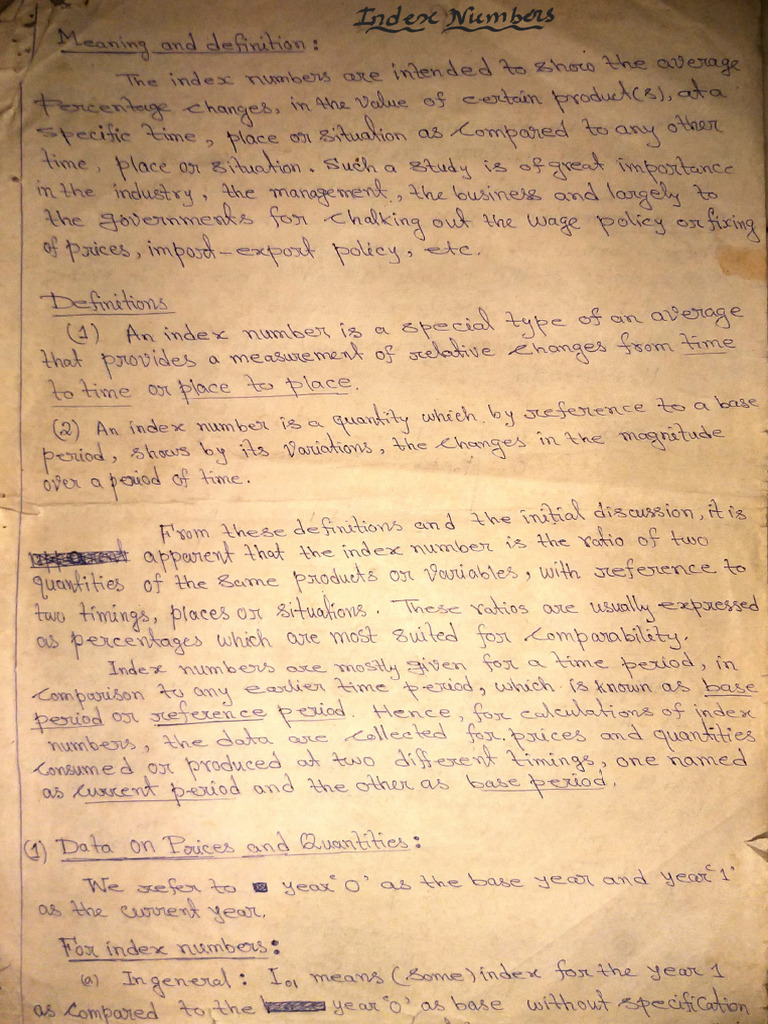 Index Numbers
Meaning and definition:
The index numbers are intended to show the average
Percentage changes, in the value of certain product(s), at a
specific time, place or situation as compared to any other
time, place or situation. Such a study is of great importance
in the industry, the management, the business and largely to
the governments for chalking out the wage policy or fixing
of prices, import-export policy, etc.
Definitions
(1) An index number is a special type of an average
that provides a measurement of relative changes from time
to time or place to place.
(2) An index number is a quantity which by reference to a base
period, shows by its variations, the changes in the magnitude
over a period of time.
From these definitions and the initial discussion, it is
apparent that the index number is the ratio of two
quantities of the same products or variables, with reference to
two timings, places or situations. These ratios are usually expressed
as percentages which are most suited for comparability.
Index numbers are mostly given for a time period, in
comparison to any earlier time period, which is known as base
period or reference period. Hence, for calculations of index
numbers, the data are collected for prices and quantities
consumed or produced at two different timings, one named
as current period and the other as base period.
(1) Data on Prices and Quantities:
We refer to year '0' as the base year and year '1'
as the current year.
For index numbers:
(a) In general: I01 means (some) index for the year 1
as compared to the year '0' as base without specification